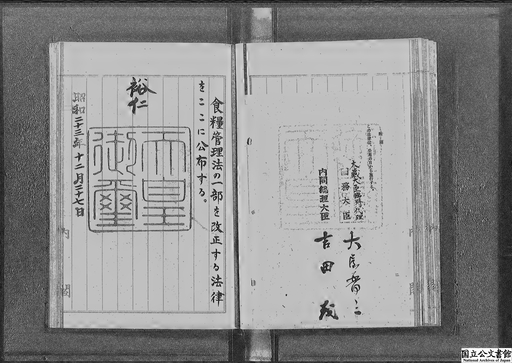 大蔵大臣臨時代理
国務大臣
大屋晋三
内閣総理大臣
吉田茂
食糧管理法の一部を改正する法律
をここに公布する。
裕仁
天皇御璽
昭和二十三年十二月二十七日
内閣
国立公文書館
National Archives of Japan